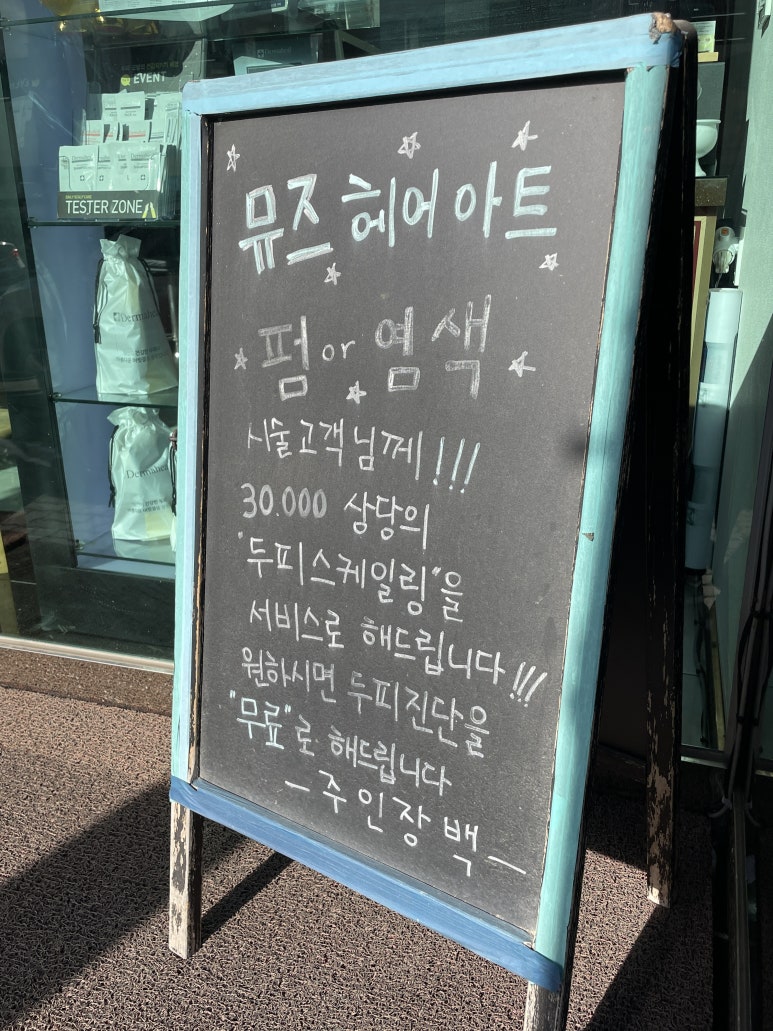 EVENT
TESTER ZONE
Dermaheal
Dermaheal
뮤즈 헤어 아트
펌 or 염색
시술고객님께!!!
30.000 상당의
"두피스케일링"을
서비스로 해드립니다!!!
원하시면 두피진단을
"무료"로 해드립니다
-주인장백-